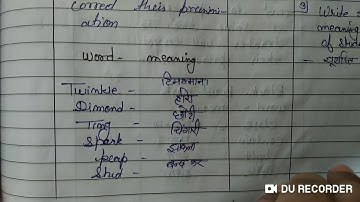 corred their pronunci-
ation
word - meaning
Twinkle - टिमटमाना
Dimond - हीरा
Ting - छोटी
Spark - चिंगारी
peep - झांकना
Shud - बन्द कर
9) Write
meaning
of
सूर्योदय
DU RECORDER